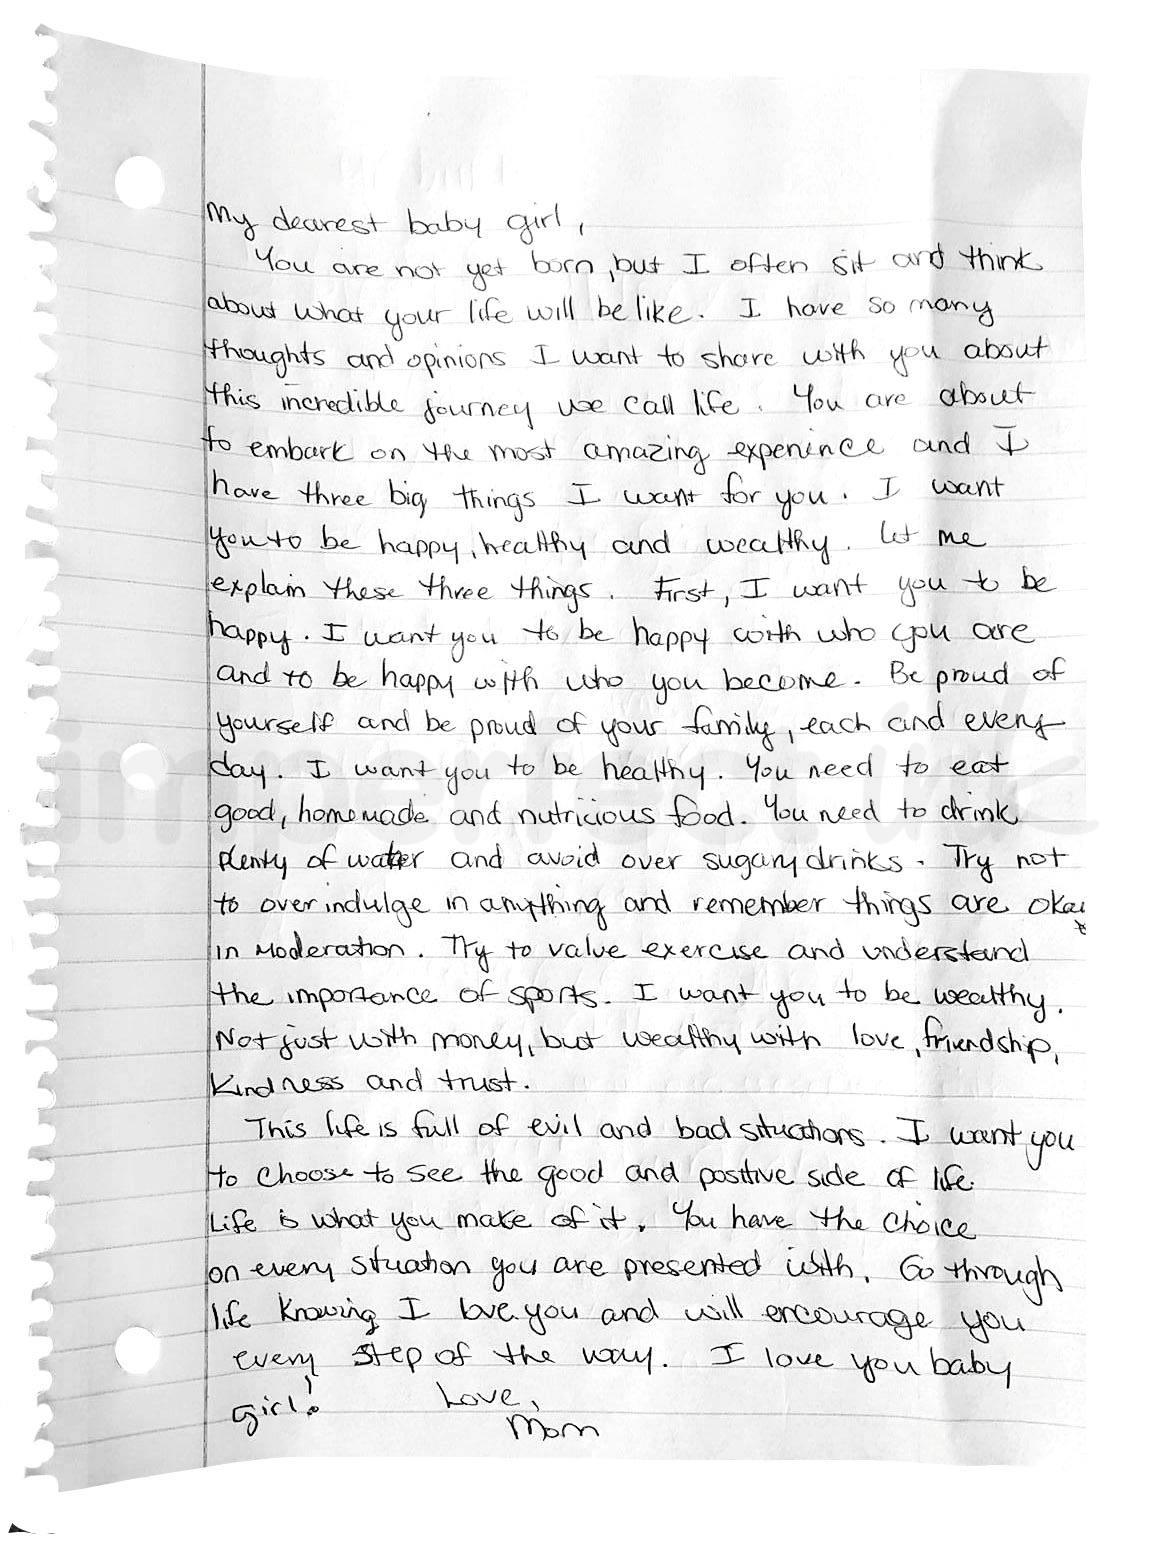 My dearest baby girl,
You are not yet born, but I often sit and think
about what your life will be like. I have so many
thoughts and opinions I want to share with you about
this incredible journey we call life. You are about
to embark on the most amazing experience and I
have three big things I want for you. I want
you to be happy, healthy and wealthy. Let me
explain these three things. First, I want you to be
happy. I want you to be happy with who you are
and to be happy with who you become. Be proud of
yourself and be proud of your family, each and every
day. I want you to be healthy. You need to eat
good, homemade and nutricious food. You need to drink
plenty of water and avoid over sugary drinks. Try not
to over indulge in anything and remember things are okay
in moderation. Try to value exercise and understand
the importance of sports. I want you to be wealthy.
Not just with money, but wealthy with love, friendship,
kindness and trust.
This life is full of evil and bad situations. I want you
to choose to see the good and positive side of life.
Life is what you make of it. You have the choice
on every situation you are presented with. Go through
life knowing I love you and will encourage you
every step of the way. I love you baby
girl!
Love,
Mom